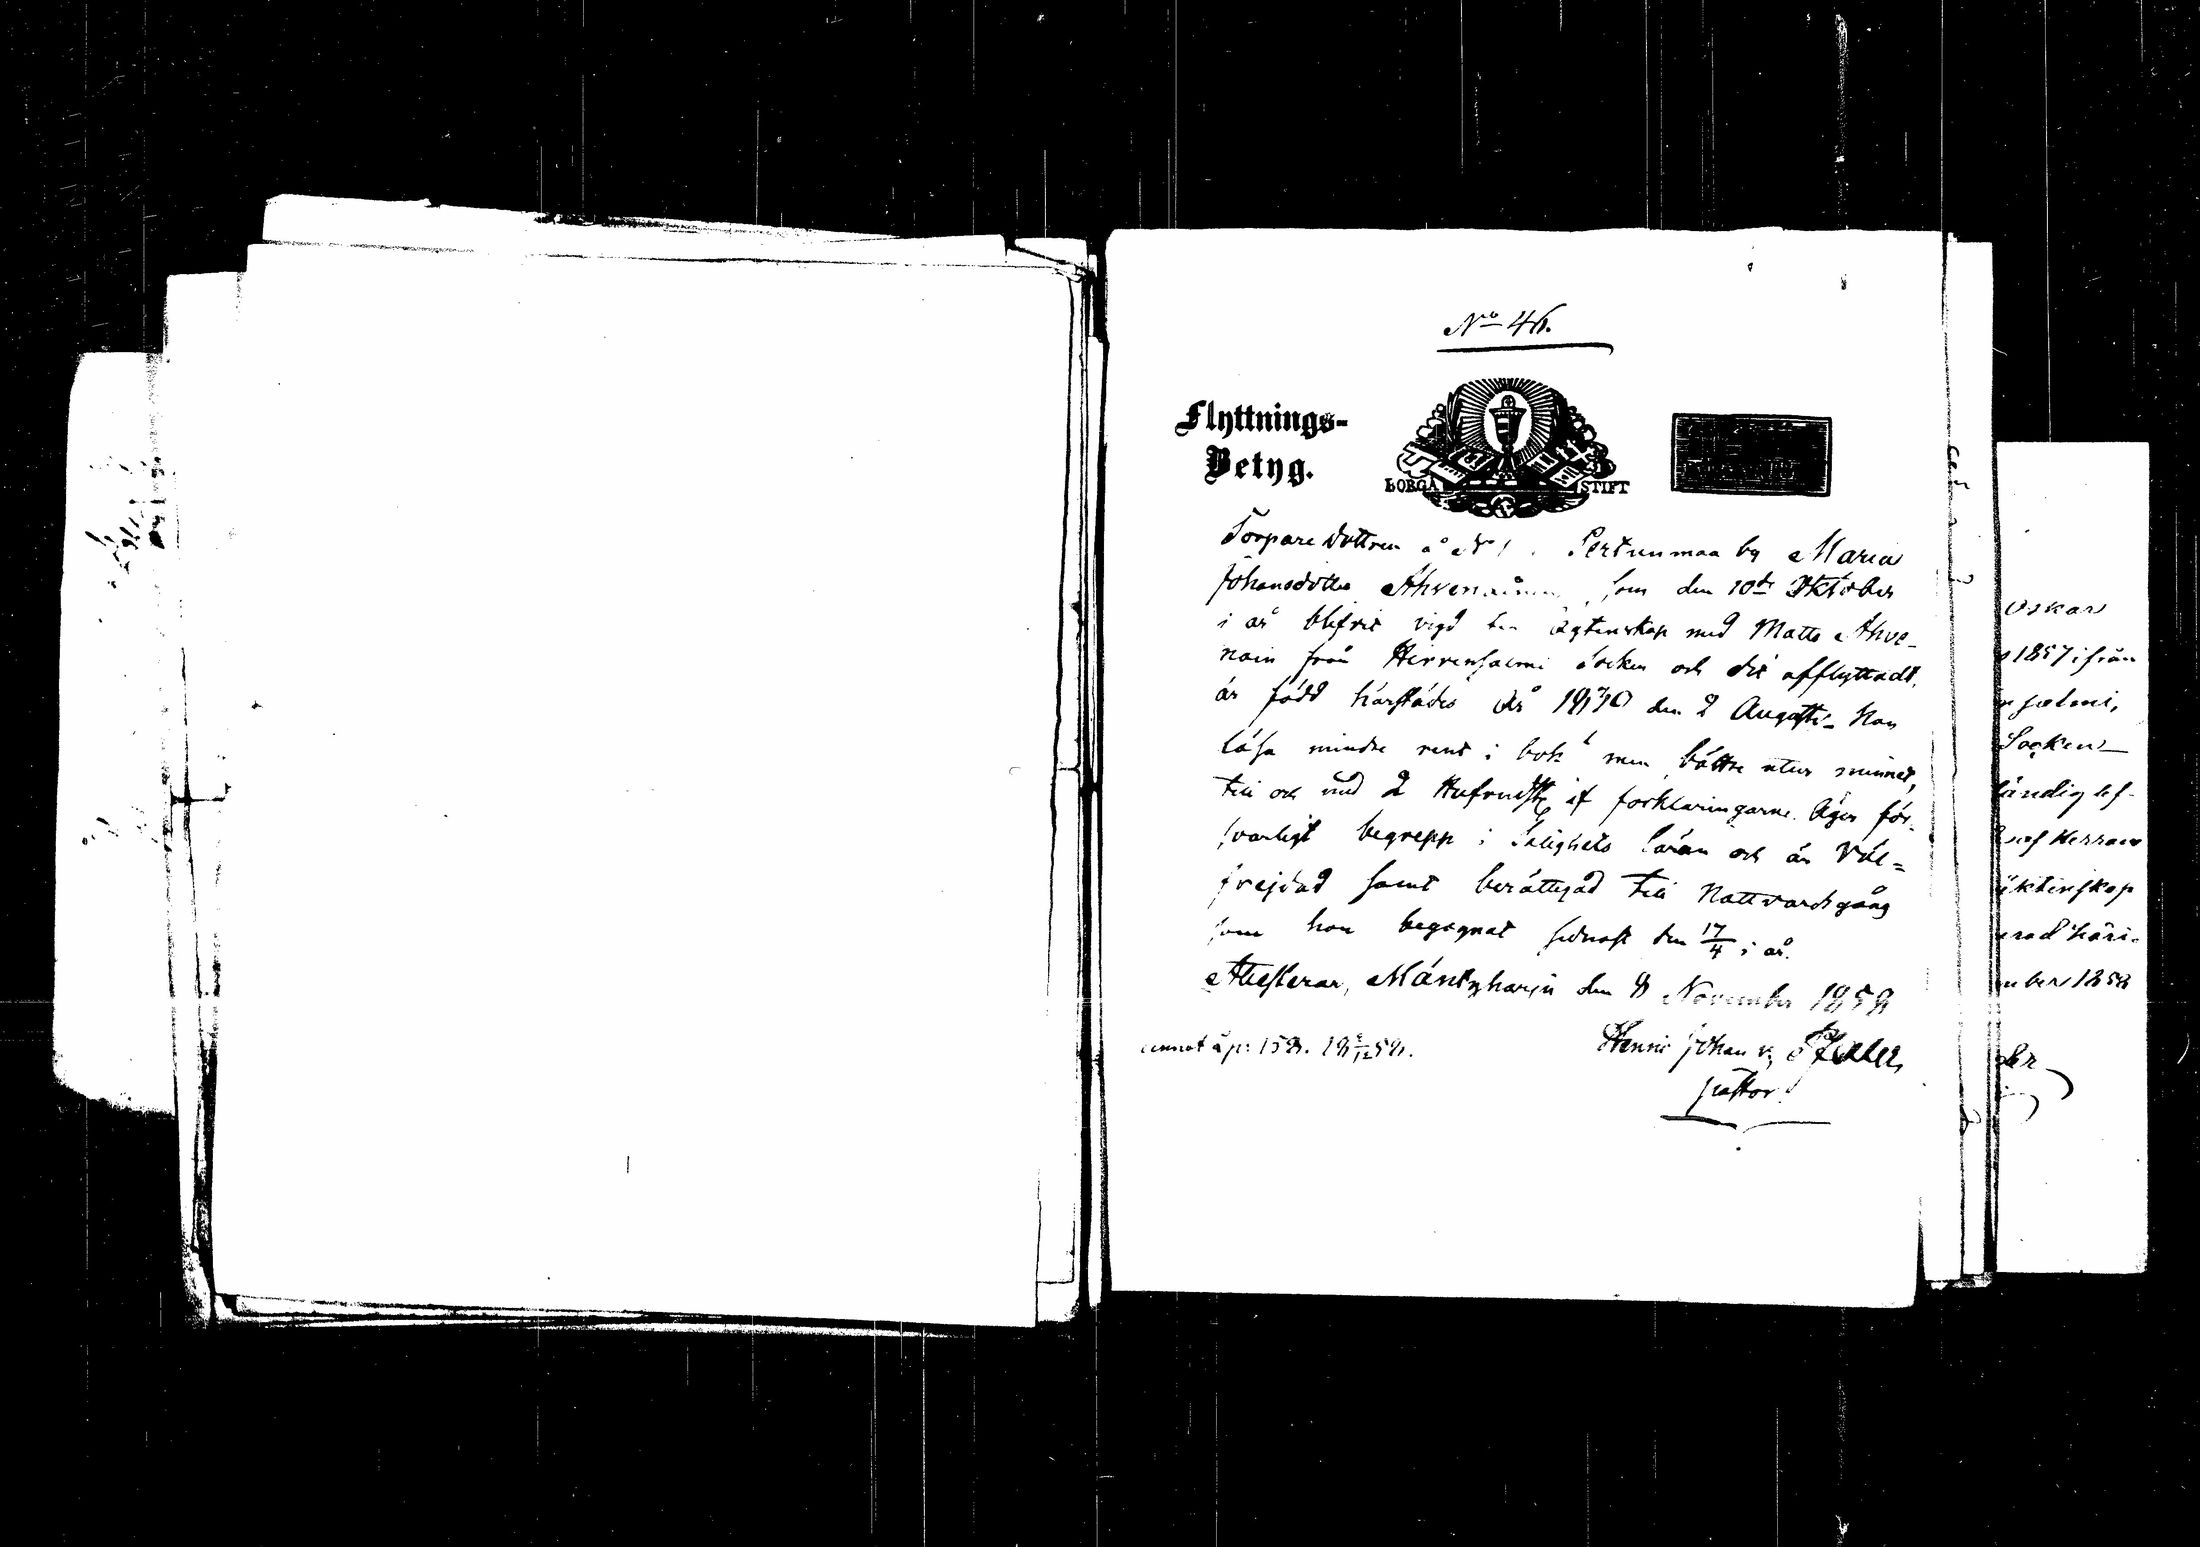 No 46.
Flyttnings-
Betyg.
BORGÅ STIFT
Torpare dottren å No 1 Pertunmaa by Maria
Johansdotter som den 10de Oktober
i år blifvit vigd till Ägtenskap med Matts Ahve-
nain från Hirvensalmi Socken och dit afflyttadt,
är född härstädes år 1830 den 2 Augusti. Kan
läsa mindre rent i bok men bättre utur minnet,
till och med 2 Hufvudst: af förklaringarne. Äger för-
svarligt begrepp i Salighets läran och är väl-
frejdad samt berättigad till Nattvardsgång
som hon begagnat sednast den 17/4 i år.
Attesterar, Mäntyharju den 8 November 1858
annot å p: 158. 18 /12 58.
Johan v.
pastor.
Oskar
1857 ifrån
salmi,
Socken
ländig bef-
af Herran
äktenskap
rad häri-
mber 1858